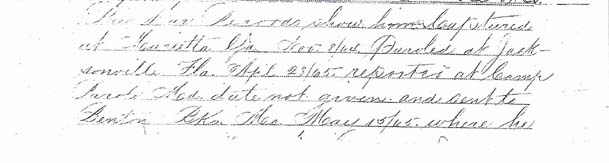 The P. of War Records show him Captured
at Marietta Ga. Nov 3/64, Paroled at Jack-
sonville Fla. Apl. 28/65. reported at Camp
Parole Md. date not given and sent to
Benton Bks Mo May 15/65. where he